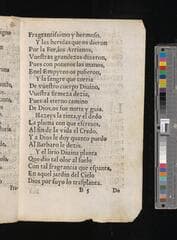 Fragrantissimo y hermoso.
Y las heridas que os dieron
Por la Fe, los Arrianos,
Vuestras grandezas dixeron,
Pues con poneros las manos,
En el Empyreo os pusieron,
Y la sangre que corria
De vuestro cuerpo Divino,
Vuestra firmeza dezia,
Pues al eterno camino
De Dios, os fue norte y guia.
Hazeys la tinta, y el dedo
La pluma con que escriuis,
Al fin de la vida el Credo,
Y a Dios le doy quanto puedo
Al Barbaro le dezis.
Y el lirio Diuina planta
Que dio tal olor al suelo
Con tal fragrancia que espanta,
En aquel jardin del Cielo
Dios por suyo lo trasplanta.
D 5 De